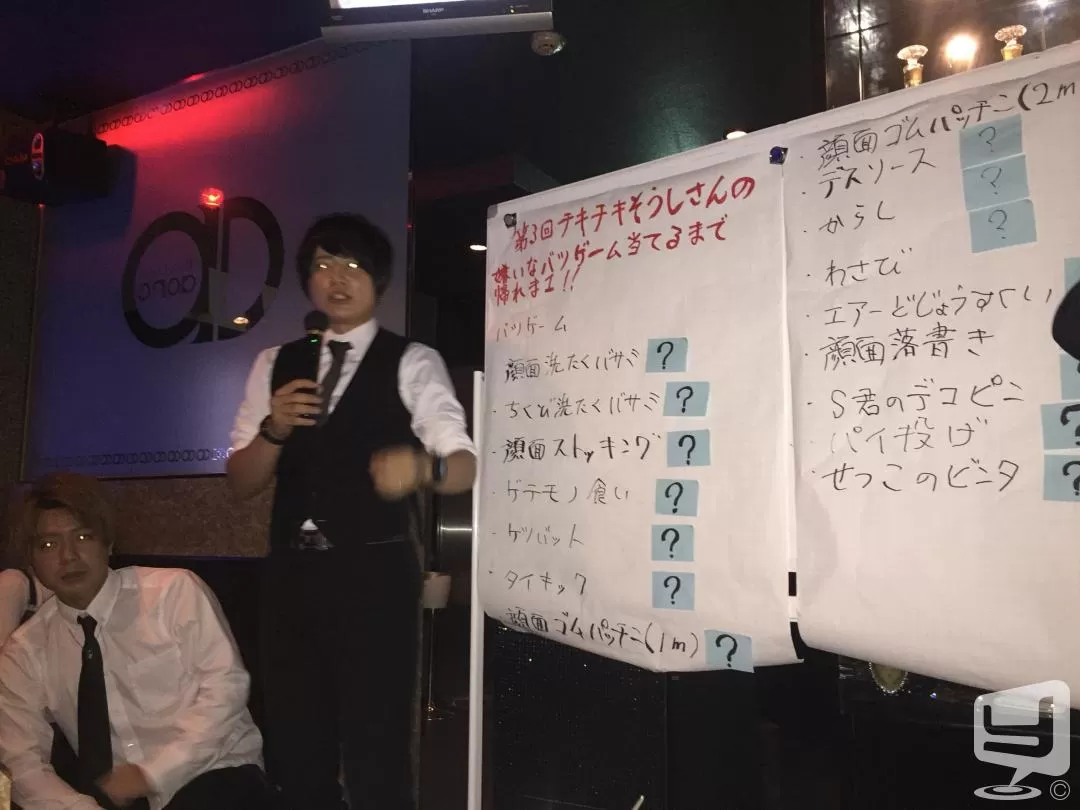 SHARP
第3回チキチキそうしさんの
嫌いなバツゲーム当てるまで
帰れま工!!
バツゲーム
顔面洗たくバサミ ?
・ちくび洗たくバサミ ?
・顔面ストッキング ?
・ゲテモノ食い ?
・ケツバット ?
・タイキック ?
顔面ゴムパッチン(1m) ?
・顔面ゴムパッチン(2m ?
・デスソース ?
・からし ?
・わさび
・エアーどじょうすくい
・顔面落書き
・S君のデコピン
・パイ投げ ?
・せつこのビンタ ?
©